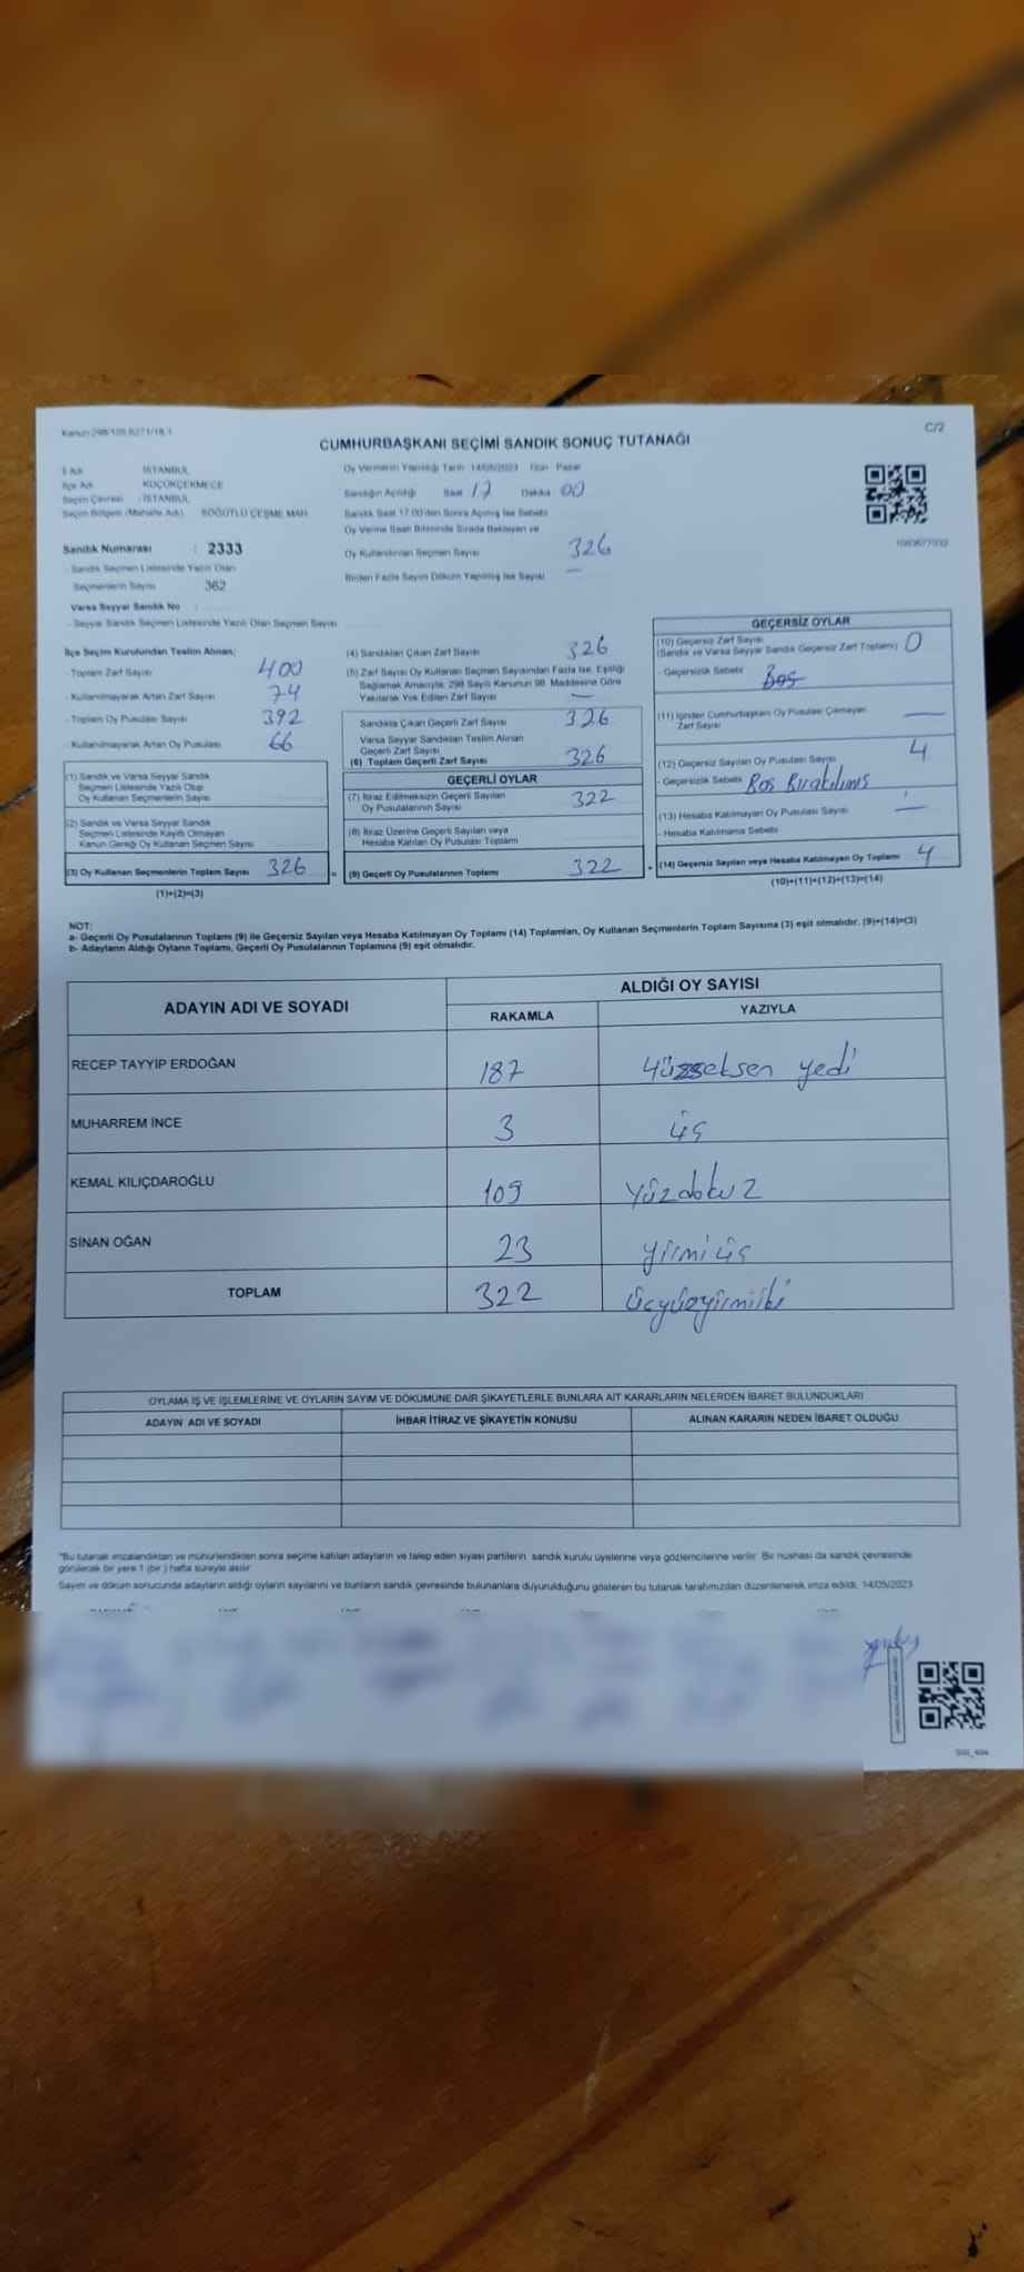 C/2
CUMHURBAŞKANI SEÇİMİ SANDIK SONUÇ TUTANAĞI
İl Adı İSTANBUL
İlçe Adı KÜÇÜKÇEKMECE
Seçim Çevresi : İSTANBUL
Seçim Bölgesi (Mahalle Adı) SÖĞÜTLÜ ÇEŞME MAH.
Sandık Numarası : 2333
- Sandık Seçmen Listesinde Yazılı Olan
Seçmenlerin Sayısı 362
Varsa Seyyar Sandık No :
- Seyyar Sandık Seçmen Listesinde Yazılı Olan Seçmen Sayısı
Oy Vermenin Yapıldığı Tarih 14/05/2023 Gün Pazar
Sandığın Açıldığı Saat 17 Dakika 00
Sandık Saat 17.00'den Sonra Açılmış İse Sebebi
Oy Verme Saati Bitiminde Sırada Bekleyen ve
Oy Kullandırılan Seçmen Sayısı 326
Birden Fazla Sayım Döküm Yapılmış İse Sayısı —
İlçe Seçim Kurulundan Teslim Alınan;
- Toplam Zarf Sayısı 400
- Kullanılmayarak Artan Zarf Sayısı 74
- Toplam Oy Pusulası Sayısı 392
- Kullanılmayarak Artan Oy Pusulası 66
(1) Sandık ve Varsa Seyyar Sandık
Seçmen Listesinde Yazılı Olup
Oy Kullanan Seçmenlerin Sayısı
(2) Sandık ve Varsa Seyyar Sandık
Seçmen Listesinde Kayıtlı Olmayan
Kanun Gereği Oy Kullanan Seçmen Sayısı
(3) Oy Kullanan Seçmenlerin Toplam Sayısı 326
(1)+(2)=(3)
(4) Sandıktan Çıkan Zarf Sayısı 326
(5) Zarf Sayısı Oy Kullanan Seçmen Sayısından Fazla İse, Eşitliği
Sağlamak Amacıyla; 298 Sayılı Kanunun 98. Maddesine Göre
Yakılarak Yok Edilen Zarf Sayısı —
Sandıkta Çıkan Geçerli Zarf Sayısı 326
Varsa Seyyar Sandıktan Teslim Alınan
Geçerli Zarf Sayısı
(6) Toplam Geçerli Zarf Sayısı 326
GEÇERLİ OYLAR
(7) İtiraz Edilmeksizin Geçerli Sayılan
Oy Pusulalarının Sayısı 322
(8) İtiraz Üzerine Geçerli Sayılan veya
Hesaba Katılan Oy Pusulası Toplamı
(9) Geçerli Oy Pusulalarının Toplamı 322
GEÇERSİZ OYLAR
(10) Geçersiz Zarf Sayısı
(Sandık ve Varsa Seyyar Sandık Geçersiz Zarf Toplamı) 0
- Geçersizlik Sebebi Boş
(11) İçinden Cumhurbaşkanı Oy Pusulası Çıkmayan
Zarf Sayısı —
(12) Geçersiz Sayılan Oy Pusulası Sayısı 4
- Geçersizlik Sebebi Boş Bırakılmış
(13) Hesaba Katılmayan Oy Pusulası Sayısı —
- Hesaba Katılmama Sebebi
(14) Geçersiz Sayılan veya Hesaba Katılmayan Oy Toplamı 4
(10)+(11)+(12)+(13)=(14)
NOT:
a- Geçerli Oy Pusulalarının Toplamı (9) ile Geçersiz Sayılan veya Hesaba Katılmayan Oy Toplamı (14) Toplamları, Oy Kullanan Seçmenlerin Toplam Sayısına (3) eşit olmalıdır. (9)+(14)=(3)
b- Adayların Aldığı Oyların Toplamı, Geçerli Oy Pusulalarının Toplamına (9) eşit olmalıdır.
ADAYIN ADI VE SOYADI
ALDIĞI OY SAYISI
RAKAMLA YAZIYLA
RECEP TAYYİP ERDOĞAN 187 Yüzseksen yedi
MUHARREM İNCE 3 üç
KEMAL KILIÇDAROĞLU 109 Yüzdokuz
SİNAN OĞAN 23 yirmi üç
TOPLAM 322 üçyüzyirmiiki
OYLAMA İŞ VE İŞLEMLERİNE VE OYLARIN SAYIM VE DÖKÜMÜNE DAİR ŞİKAYETLERLE BUNLARA AİT KARARLARIN NELERDEN İBARET BULUNDUKLARI
ADAYIN ADI VE SOYADI İHBAR İTİRAZ VE ŞİKAYETİN KONUSU ALINAN KARARIN NEDEN İBARET OLDUĞU
*Bu tutanak imzalandıktan ve mühürlendikten sonra seçime katılan adayların ve talep eden siyasi partilerin sandık kurulu üyelerine veya gözlemcilerine verilir. Bir nüshası da sandık çevresinde
görülecek bir yere 1 (bir) hafta süreyle asılır.
Sayım ve döküm sonucunda adayların aldığı oyların sayılarını ve bunların sandık çevresinde bulunanlara duyurulduğunu gösteren bu tutanak tarafımızdan düzenlenerek imza edildi. 14/05/2023